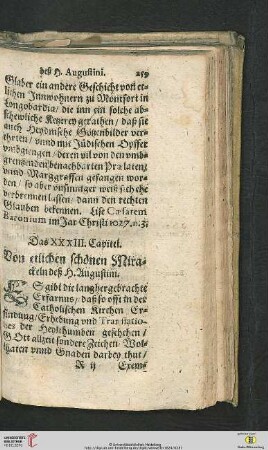 deß H. Augustini. 259
Glaber ein andere Geschicht von et-
lichen Innwohnern zu Montfort in
Longobardia/ die inn ein solche ab-
schewliche Ketzerey gerathen/ daß sie
auch Heydnische Götzenbilder ver-
ehrten/ vnnd mit Jüdischen Opffer
vmbgiengen/ deren vil von den vmb-
grentzenden benachbarten Prælaten
vnnd Marggraffen gefangen wor-
den/ so aber vnsinniger weiß sich ehe
verbrennen lassen/ dann den rechten
Glauben bekennen. Lise Cæsarem
Baronium im Jar Christi 1027. n. 3.
Das XXXIII. Capitel.
Von etlichen schönen Mira-
ckeln deß H. Augustini.
ES gibt die langhergebrachte
Erfarnus/ daß so offt in der
Catholischen Kirchen Er-
findung/ Erhebung vnd Translatio-
nes der Heylthumben geschehen/
GOtt allzeit sondere Zeichen/ Wol-
thaten vnnd Gnaden darbey thut/
R ij Exem-